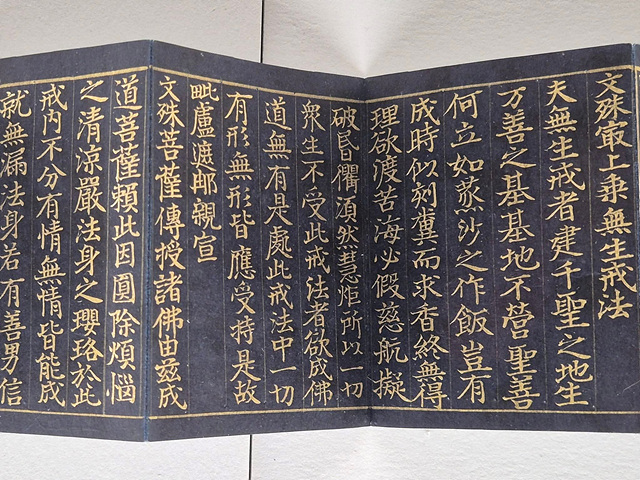 文殊㝡上乘無生戒法
夫無生戒者建千聖之地生
万善之基基地不營聖善
何立如蒸沙之作飯豈有
成時似刻糞而求香終無得
理欲渡苦海必假慈航擬
破昏衢湏然慧炬所以一切
衆生不受此戒法者欲成佛
道無有是處此戒法中一切
有形無形皆應受持是故
毗盧遮那親宣
文殊菩薩傳授諸佛由茲成
道菩薩賴此因圓除煩惱
之清凉嚴法身之瓔珞於此
戒內不分有情無情皆能成
就無漏法身若有善男信